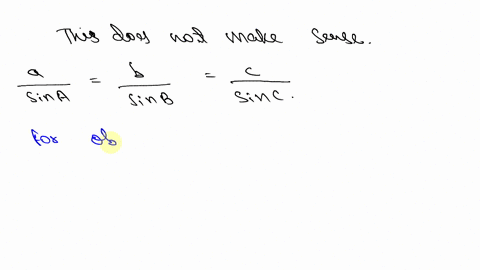 This does not make sense.
a/sinA = b/sinB = c/sinC.
for ob